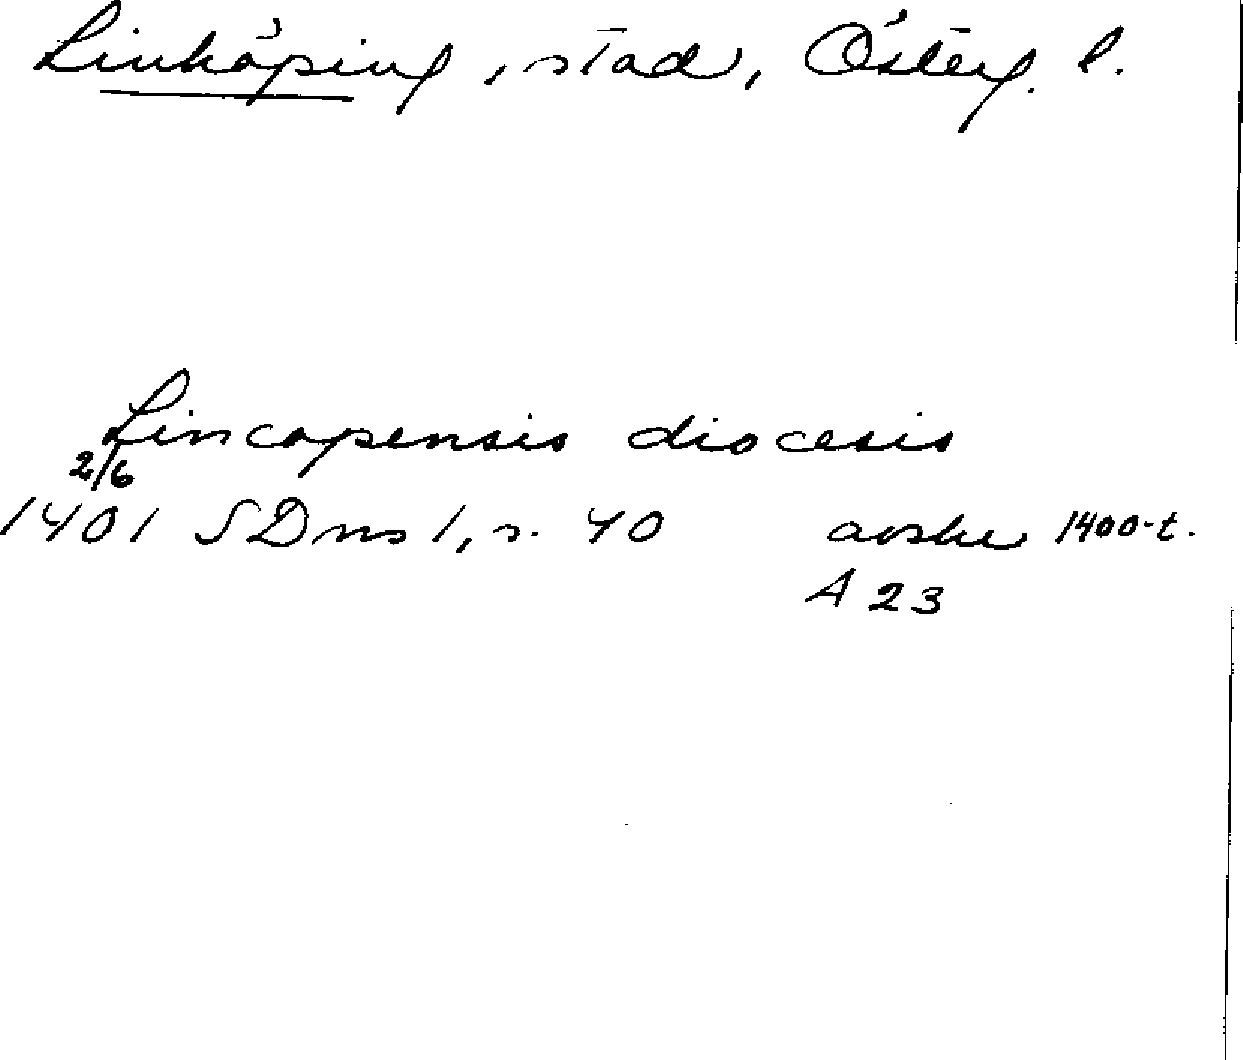 Linköping, stad, Österg. l.
Lincopensis diocesis
2/6
1401 SDns 1, s. 40 avskr 1400-t.
A 23